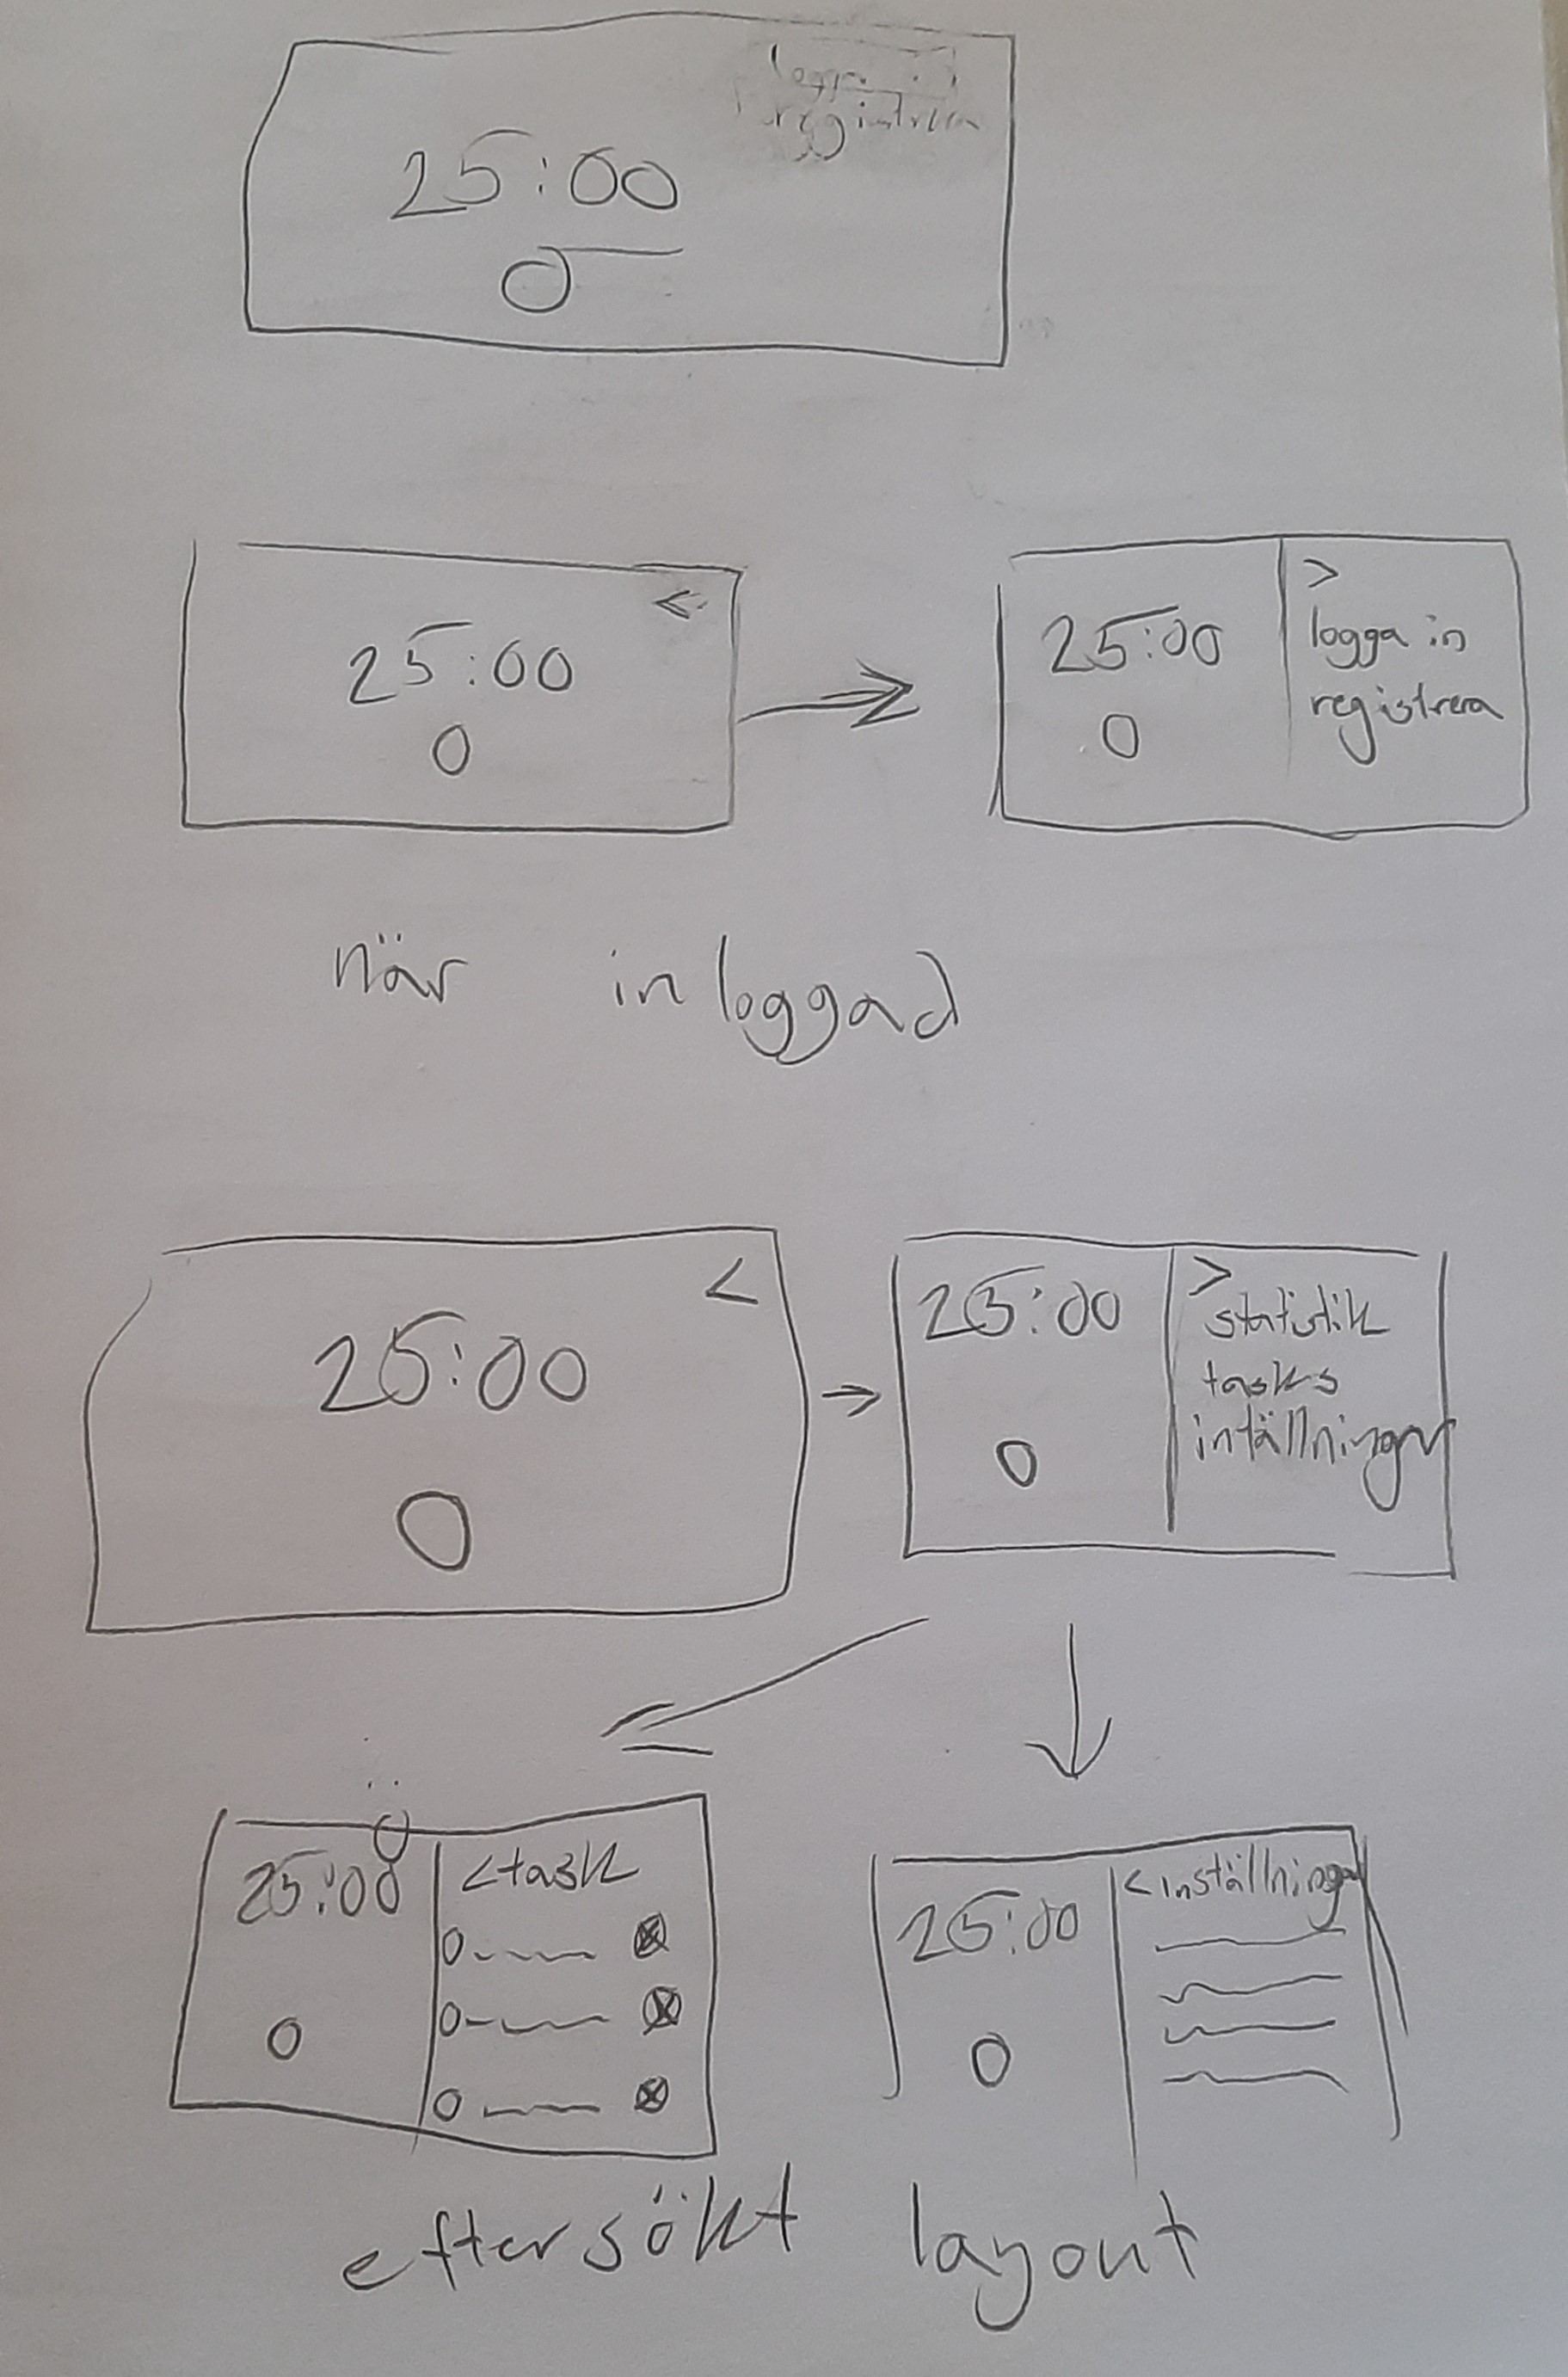 logga in
registrera
25:00
<
25:00
25:00
>
logga in
registrera
när inloggad
<
25:00
25:00
>
statistik
tasks
intällningar
25:00
<task
25:00
<inställningar
eftersökt layout